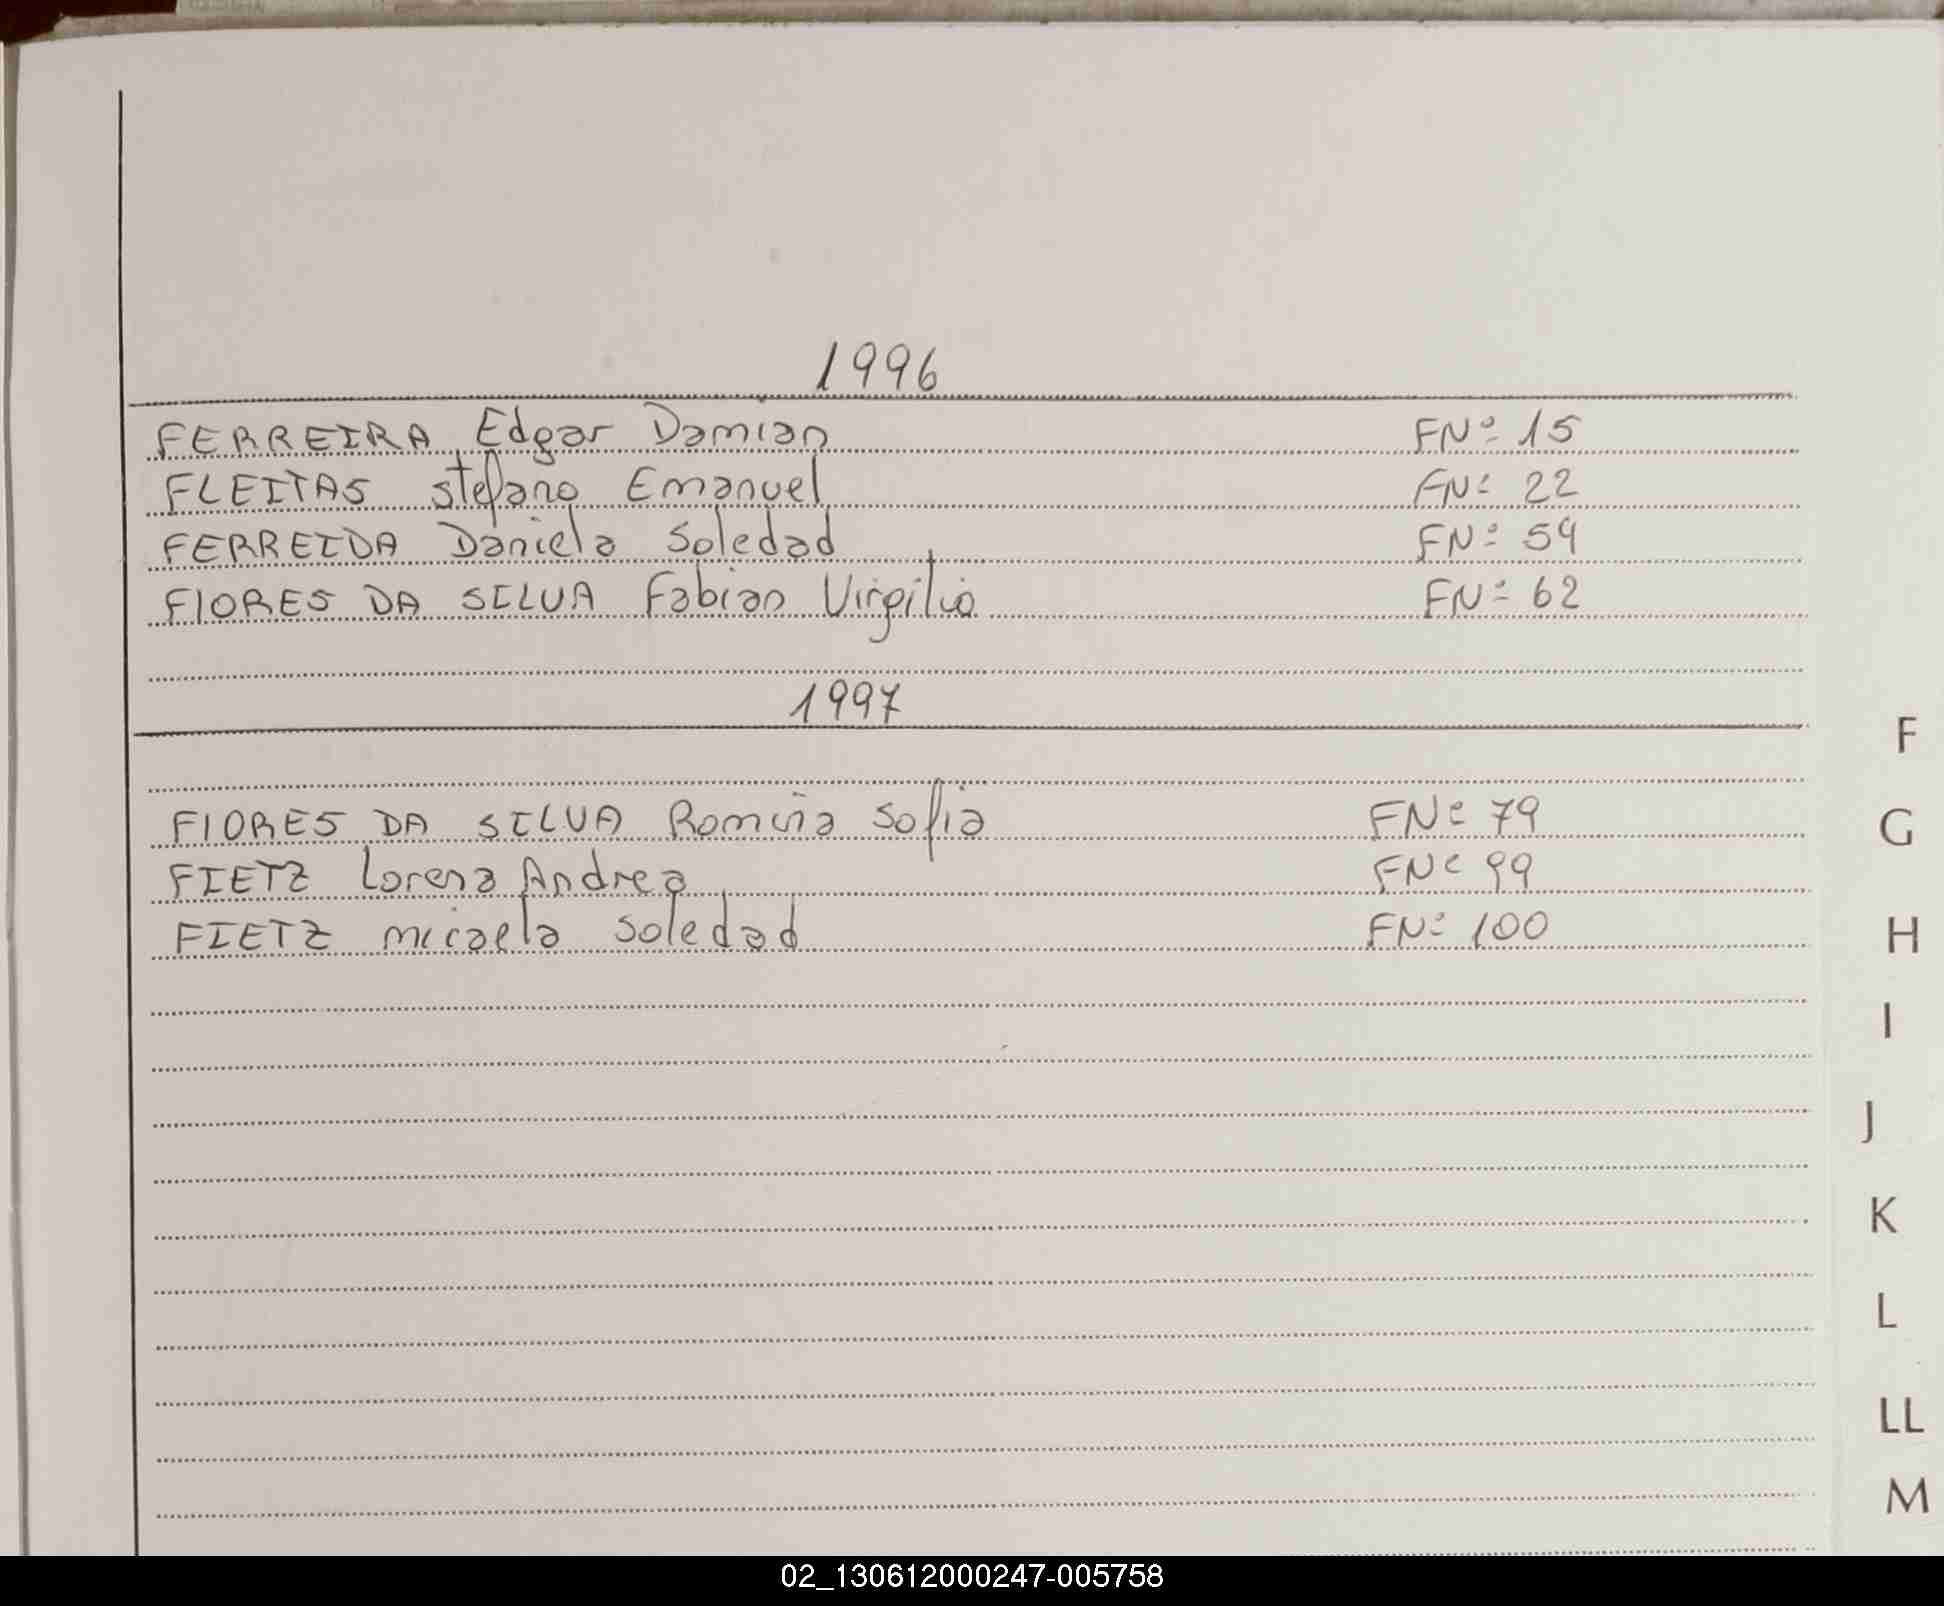 1996
FERREIRA Edgar Damian FNº 15
FLEITAS Stefano Emanuel FNº 22
FERREIDA Daniela Soledad FNº 59
FIORES DA SILVA Fabian Virgilio FNº 62
1997
FIORES DA SILVA Romina Sofia FNº 79
FIETZ Lorena Andrea FNº 99
FIETZ micaela Soledad FNº 100
F
G
H
I
J
K
L
LL
M
02_130612000247-005758